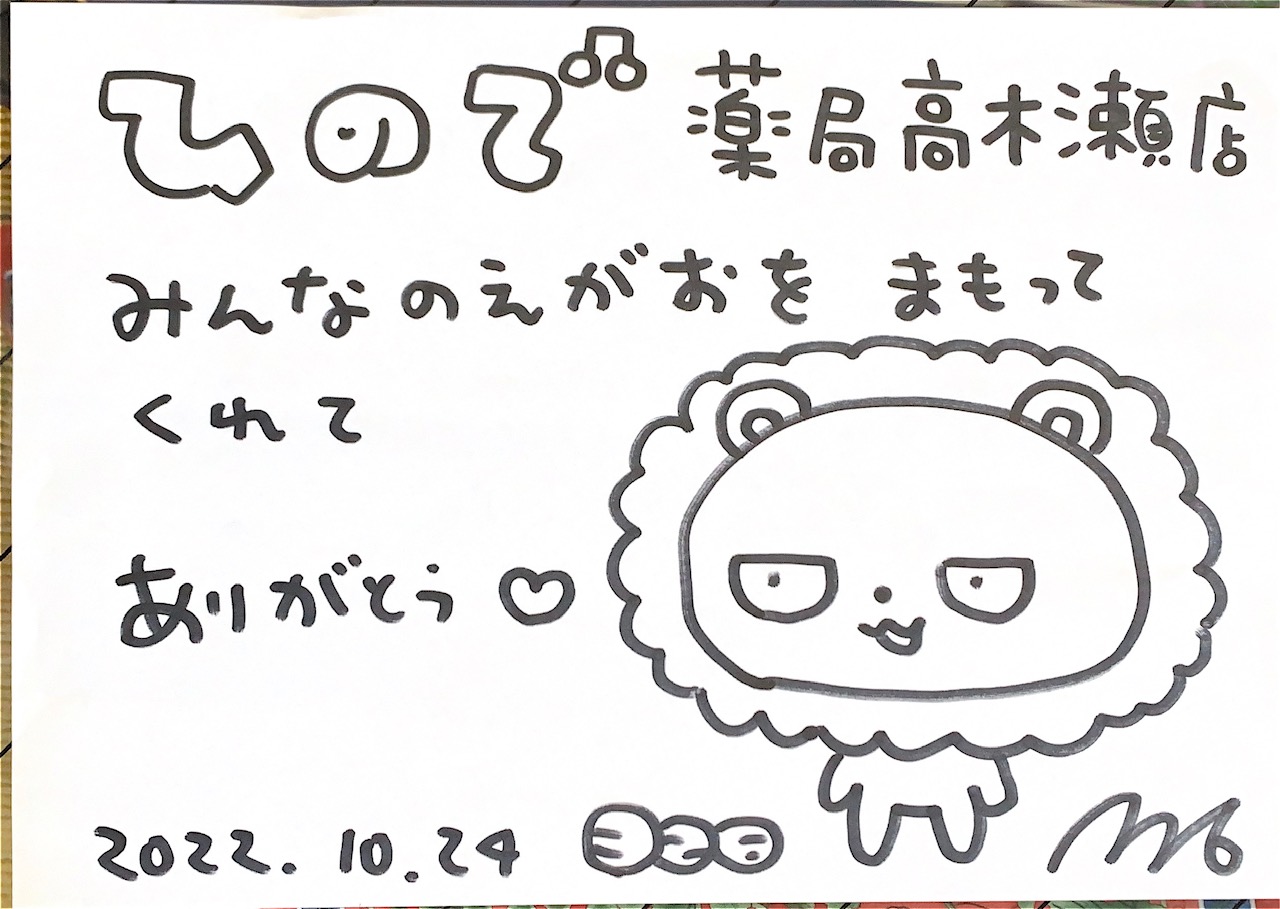 ひので薬局高木瀬店
みんなのえがおを まもって
くれて
ありがとう♡
2022.10.24